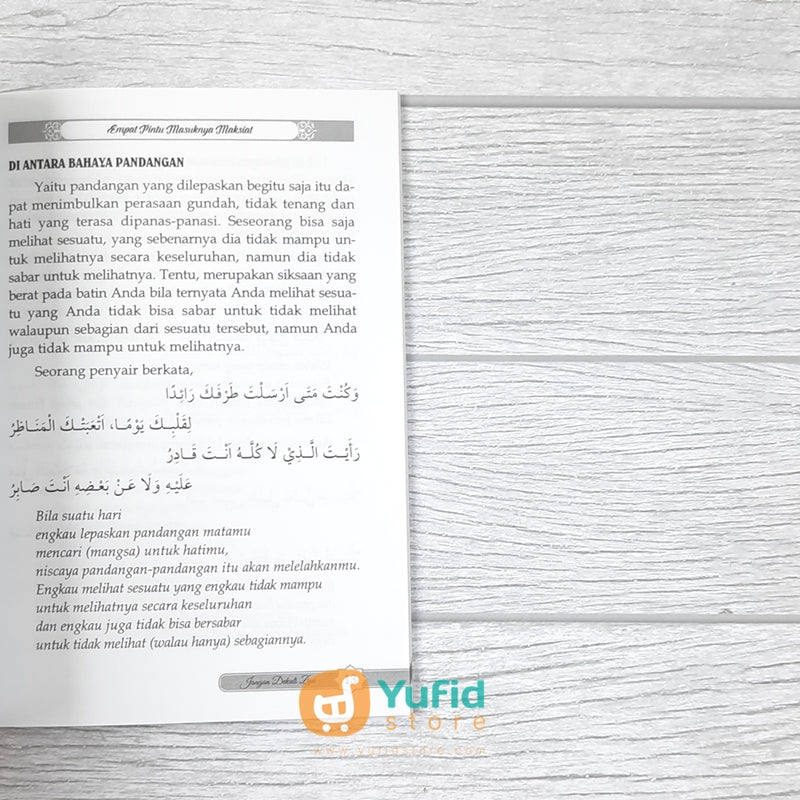 Empat Pintu Masuknya Maksiat
DI ANTARA BAHAYA PANDANGAN
Yaitu pandangan yang dilepaskan begitu saja itu da-
pat menimbulkan perasaan gundah, tidak tenang dan
hati yang terasa dipanas-panasi. Seseorang bisa saja
melihat sesuatu, yang sebenarnya dia tidak mampu un-
tuk melihatnya secara keseluruhan, namun dia tidak
sabar untuk melihatnya. Tentu, merupakan siksaan yang
berat pada batin Anda bila ternyata Anda melihat sesua-
tu yang Anda tidak bisa sabar untuk tidak melihat
walaupun sebagian dari sesuatu tersebut, namun Anda
juga tidak mampu untuk melihatnya.
Seorang penyair berkata,
وَكُنْتَ مَتَى اَرْسَلْتَ طَرْفَكَ رَائِدًا
لِقَلْبِكَ يَوْمًا، اَتْعَبَتْكَ الْمَنَاظِرُ
رَأَيْتَ الَّذِيْ لَا كُلَّهُ اَنْتَ قَادِرُ
عَلَيْهِ وَلَا عَنْ بَعْضِهِ اَنْتَ صَابِرُ
Bila suatu hari
engkau lepaskan pandangan matamu
mencari (mangsa) untuk hatimu,
niscaya pandangan-pandangan itu akan melelahkanmu.
Engkau melihat sesuatu yang engkau tidak mampu
untuk melihatnya secara keseluruhan
dan engkau juga tidak bisa bersabar
untuk tidak melihat (walau hanya) sebagiannya.
Jangan Dekati
Yufid
store
www.yufidstore.com